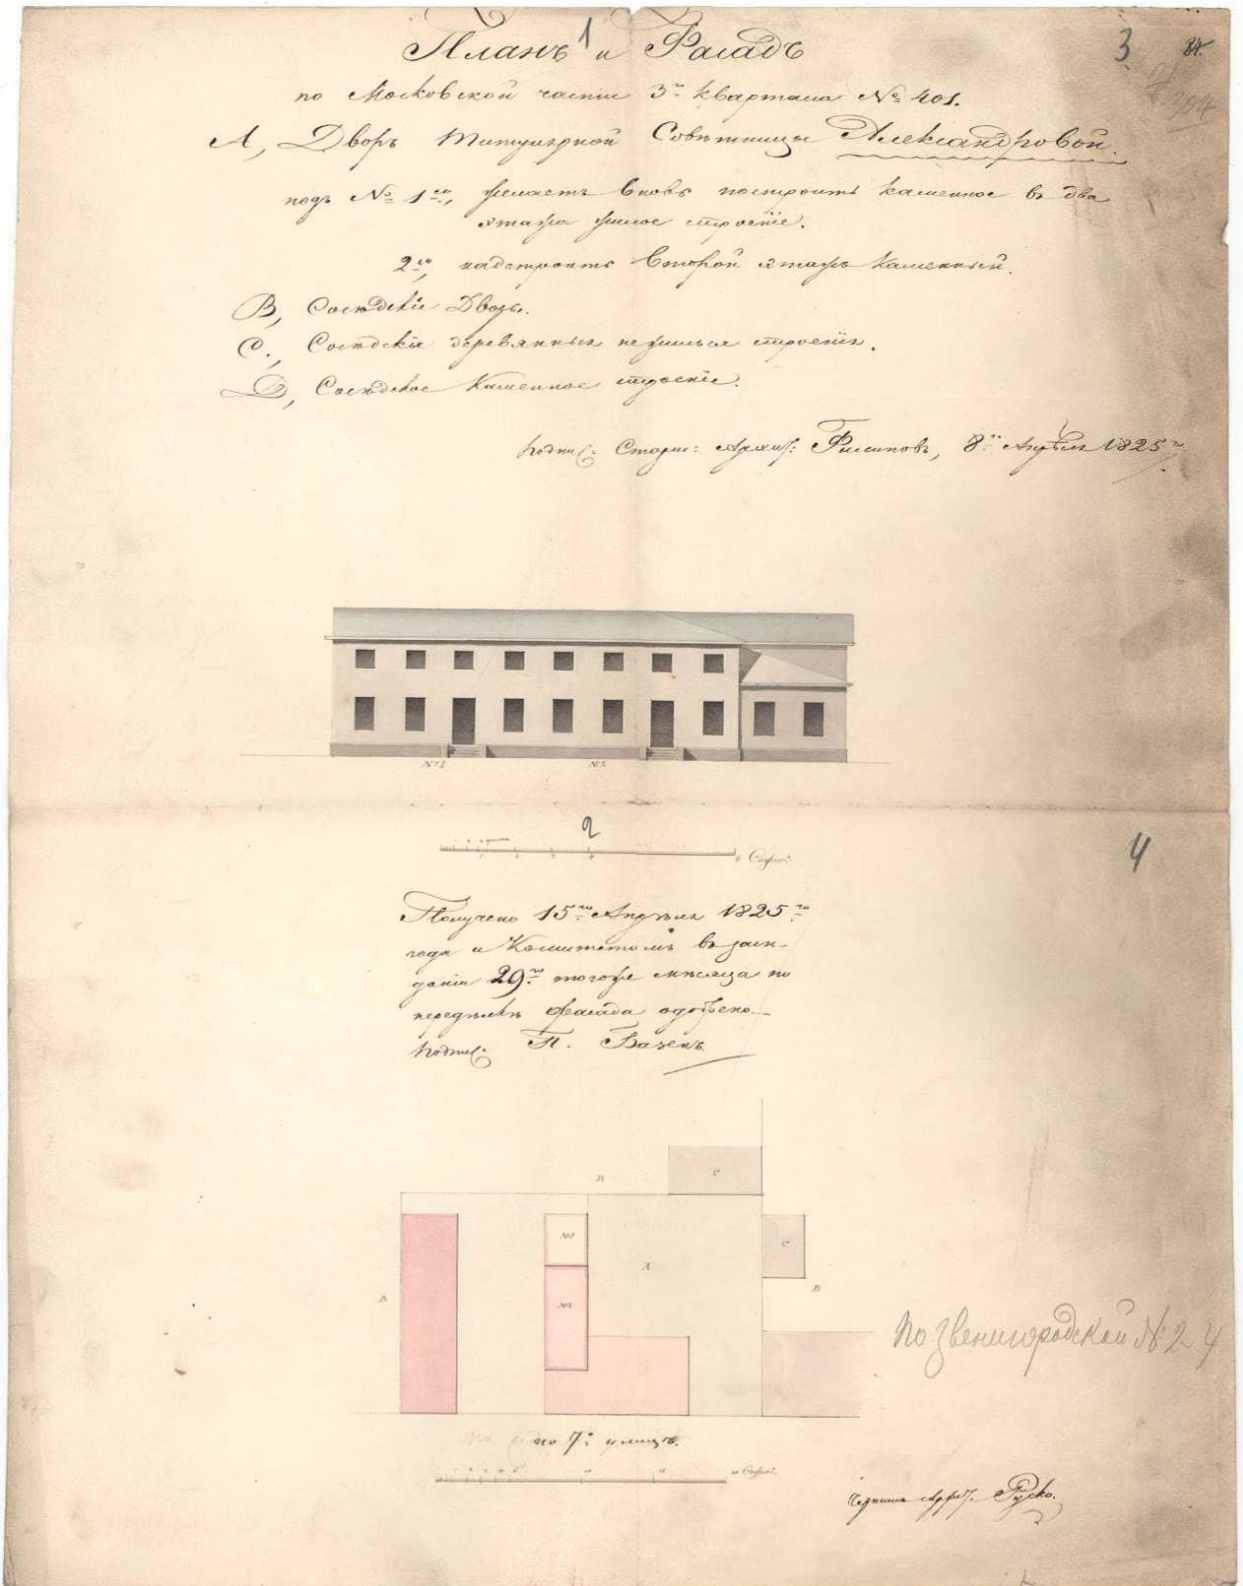 1
3
84.
304
Планъ и Фасадъ
по Московской части 3го квартала № 401.
А, Дворъ Титулярной Совѣтницы Александровой.
подъ № 1мъ, желаетъ вновь построить каменное въ два
этажа жилое строеніе.
2мъ, надстроить второй этажъ каменный.
В, Сосѣдскіе Дворы.
С., Сосѣдскіе деревянныя нежилыя строенія.
D, Сосѣдское каменное строеніе.
Подпис: Старш: Архит: Филиповъ, 8го Апрѣля 1825го
№2
№1
2
Сажень
4
Получено 15го Апрѣля 1825го
года и Комитетомъ въ засѣ-
даніи 29го тогоже мѣсяца по
передѣлкѣ фасада одобрено
Подпис: П. Базенъ
С
В
№1
А
С
В
№2
В
по Звенигородской № 24
по 7й улицѣ.
Сажень
Архит. Руско.